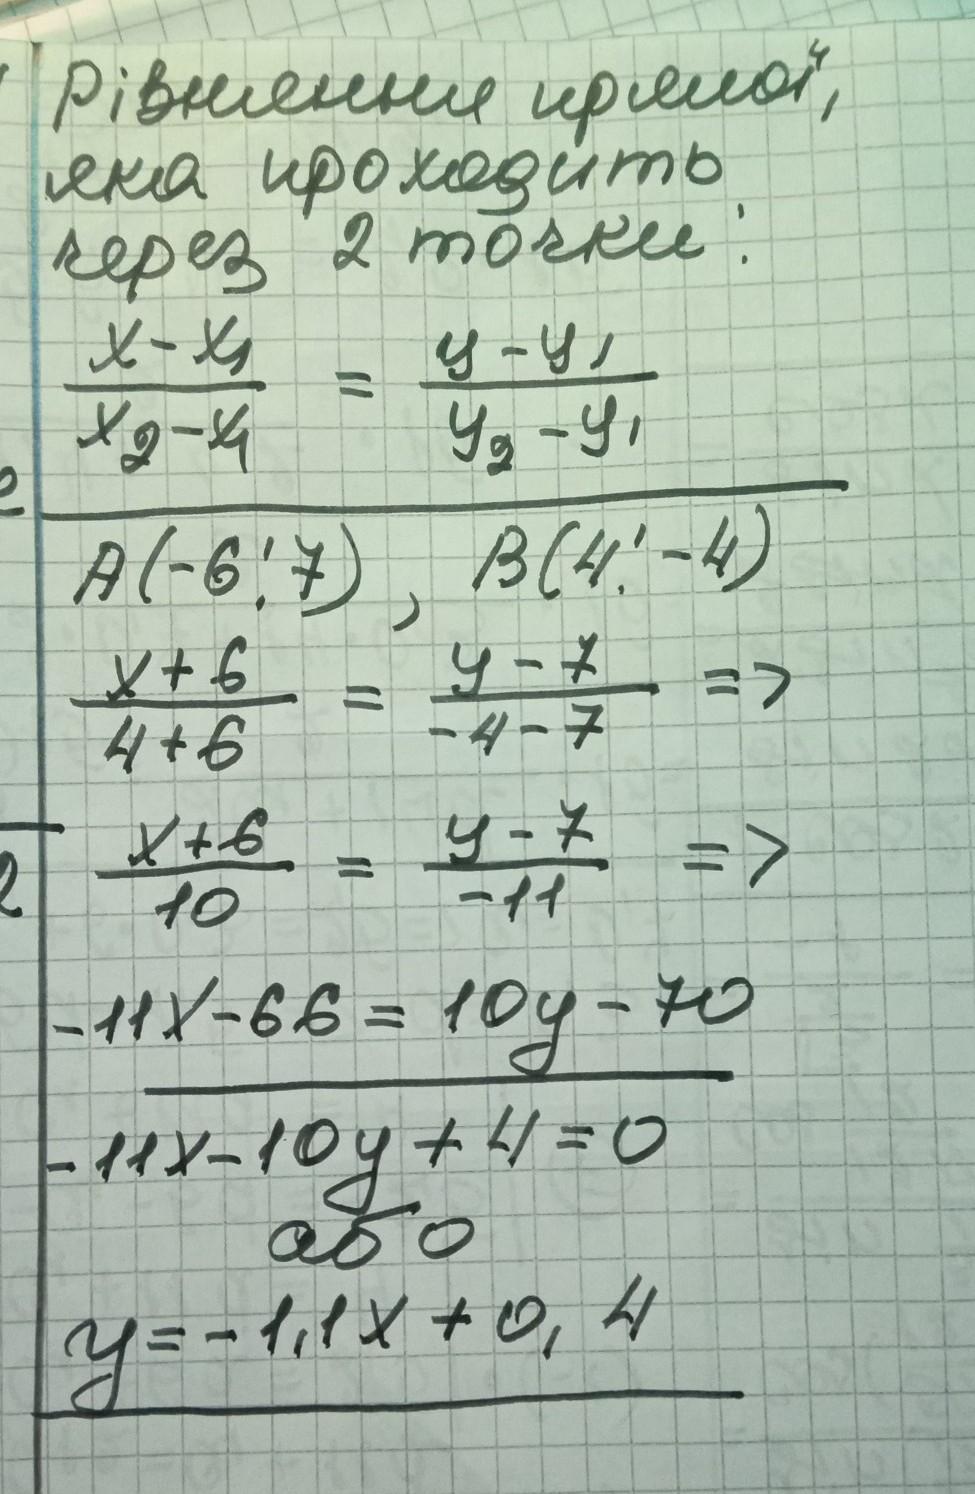 Рівняння прямої,
яка проходить
через 2 точки:
x - x₁ / x₂ - x₁ = y - y₁ / y₂ - y₁
A(-6; 7), B(4; -4)
x + 6 / 4 + 6 = y - 7 / -4 - 7 =>
x + 6 / 10 = y - 7 / -11 =>
-11x - 66 = 10y - 70
-11x - 10y + 4 = 0
або
y = -1,1x + 0,4